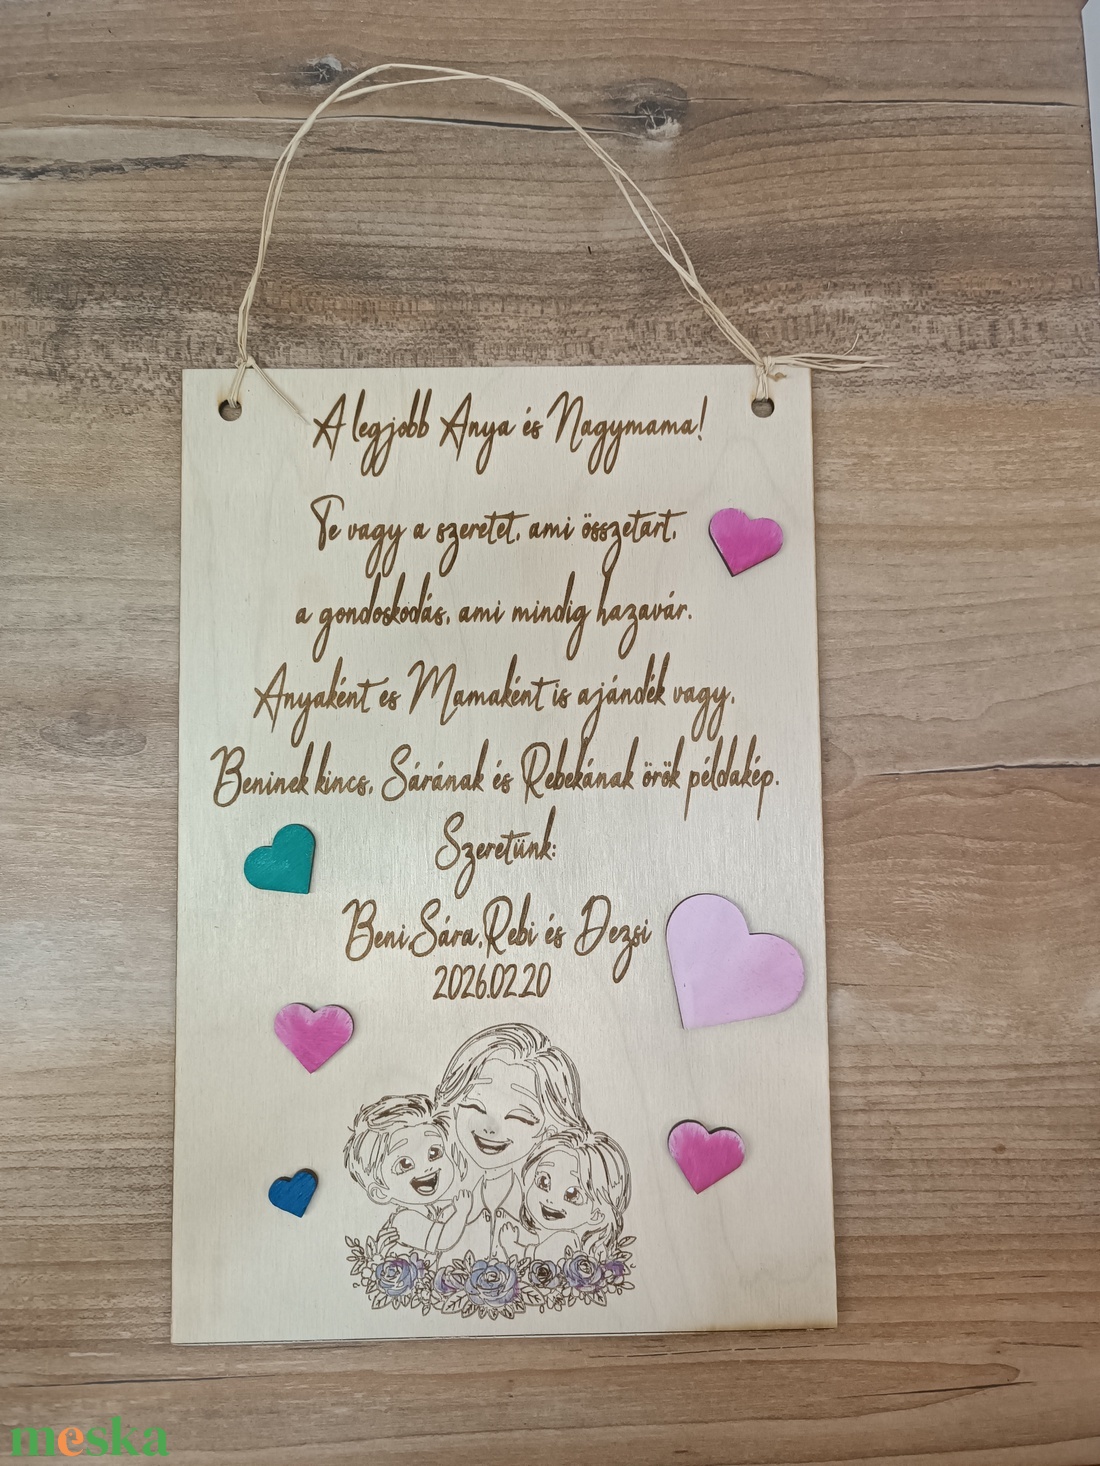 A legjobb Anya és Nagymama!
Te vagy a szeretet, ami összetart,
a gondoskodás, ami mindig hazavár.
Anyaként es Mamaként is ajándék vagy,
Beninek kincs, Sárának és Rebekának örök példakép.
Szeretünk:
Beni,Sára,Rebi és Dezsi
2026.02.20
meska